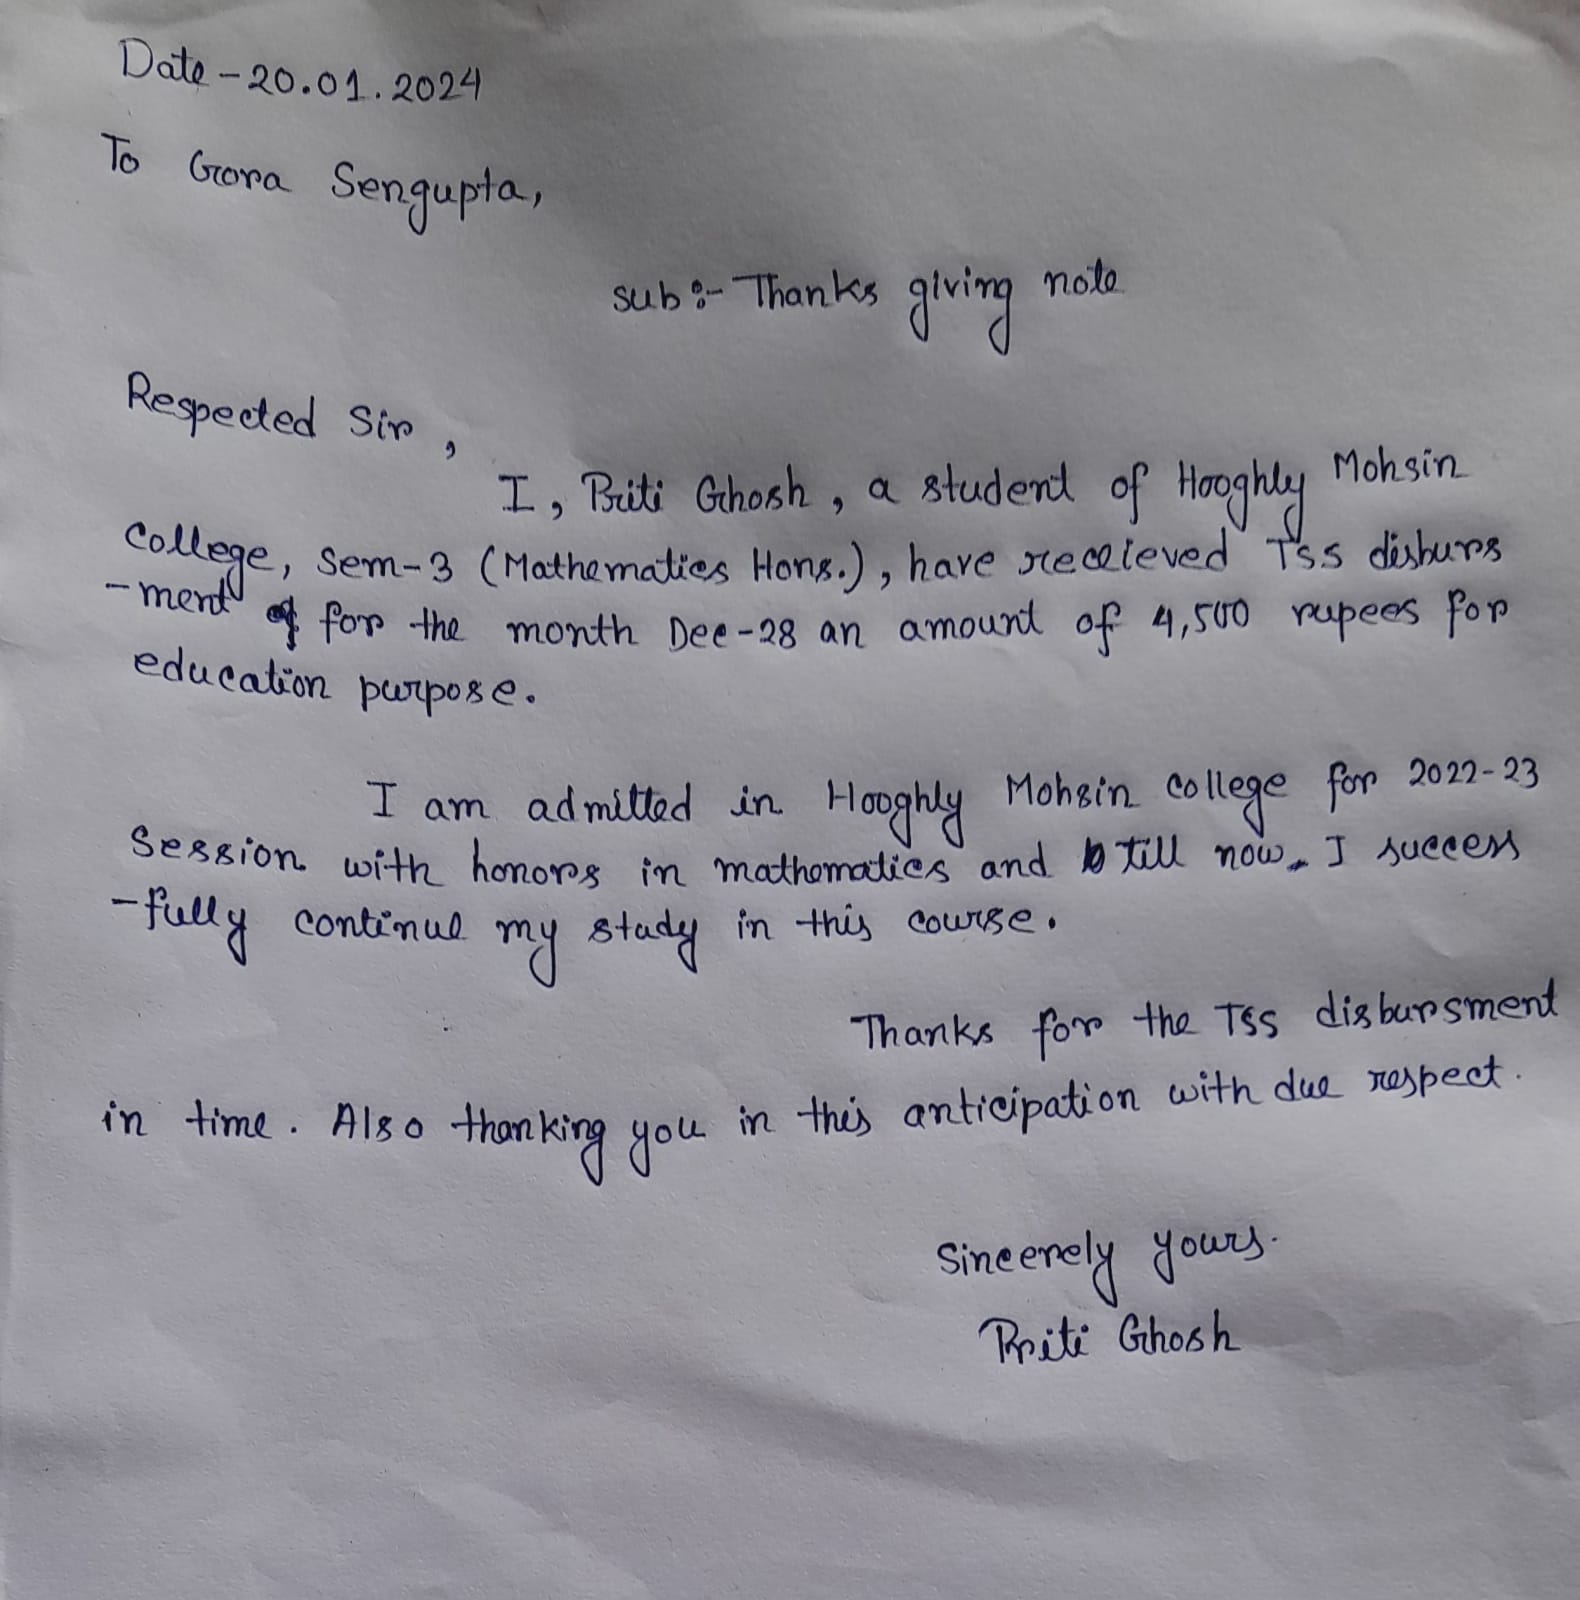 Date - 20.01.2024
To Gora Sengupta,
sub :- Thanks giving note
Respected Sir,
I, Priti Ghosh, a student of Hooghly Mohsin
College, Sem-3 (Mathematics Hons.), have receieved TSS disburs
-ment for the month Dec-28 an amount of 4,500 rupees for
education purpose.
I am admitted in Hooghly Mohsin College for 2022-23
Session with honors in mathematics and till now, I success
-fully continue my study in this course.
Thanks for the TSS disbursment
in time. Also thanking you in this anticipation with due respect.
Sincerely yours.
Priti Ghosh